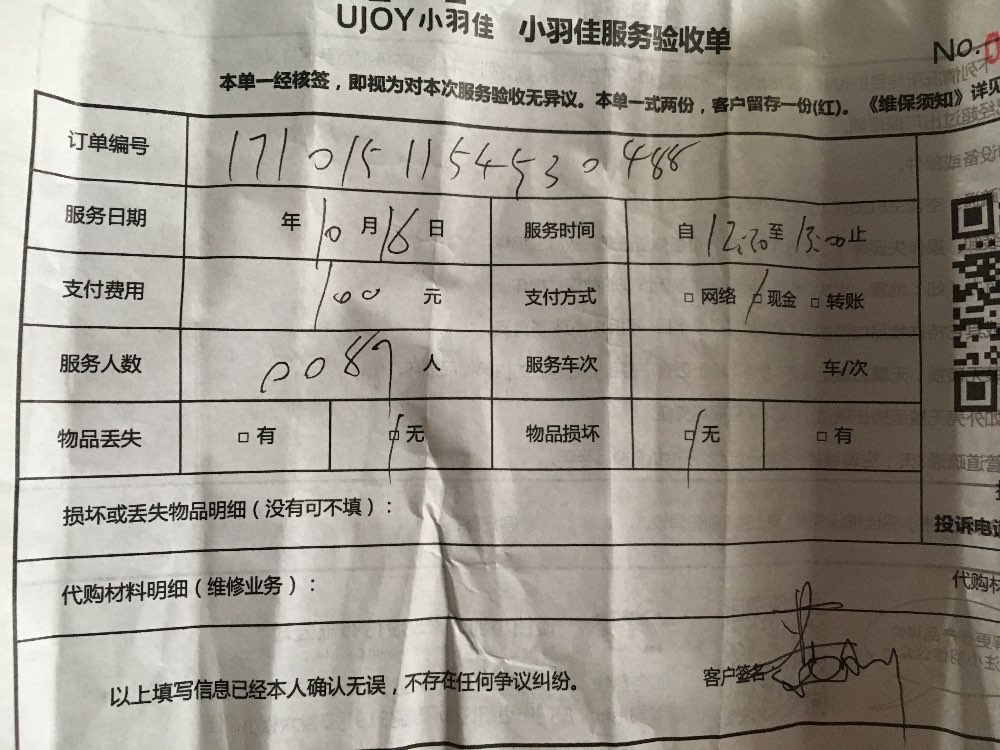 UJOY小羽佳 小羽佳服务验收单
No.0
本单一经核签，即视为对本次服务验收无异议。本单一式两份，客户留存一份(红)。《维保须知》详见
订单编号 1710151154530488
服务日期 年 10 月 16 日 服务时间 自 12:30 至 15:00 止
支付费用 100 元 支付方式 □ 网络 □ 现金 □ 转账
服务人数 0089 人 服务车次 车/次
物品丢失 □ 有 □ 无 物品损坏 □ 无 □ 有
损坏或丢失物品明细（没有可不填）：
投诉电话
代购材料明细（维修业务）：
代购材
以上填写信息已经本人确认无误，不存在任何争议纠纷。
客户签名：